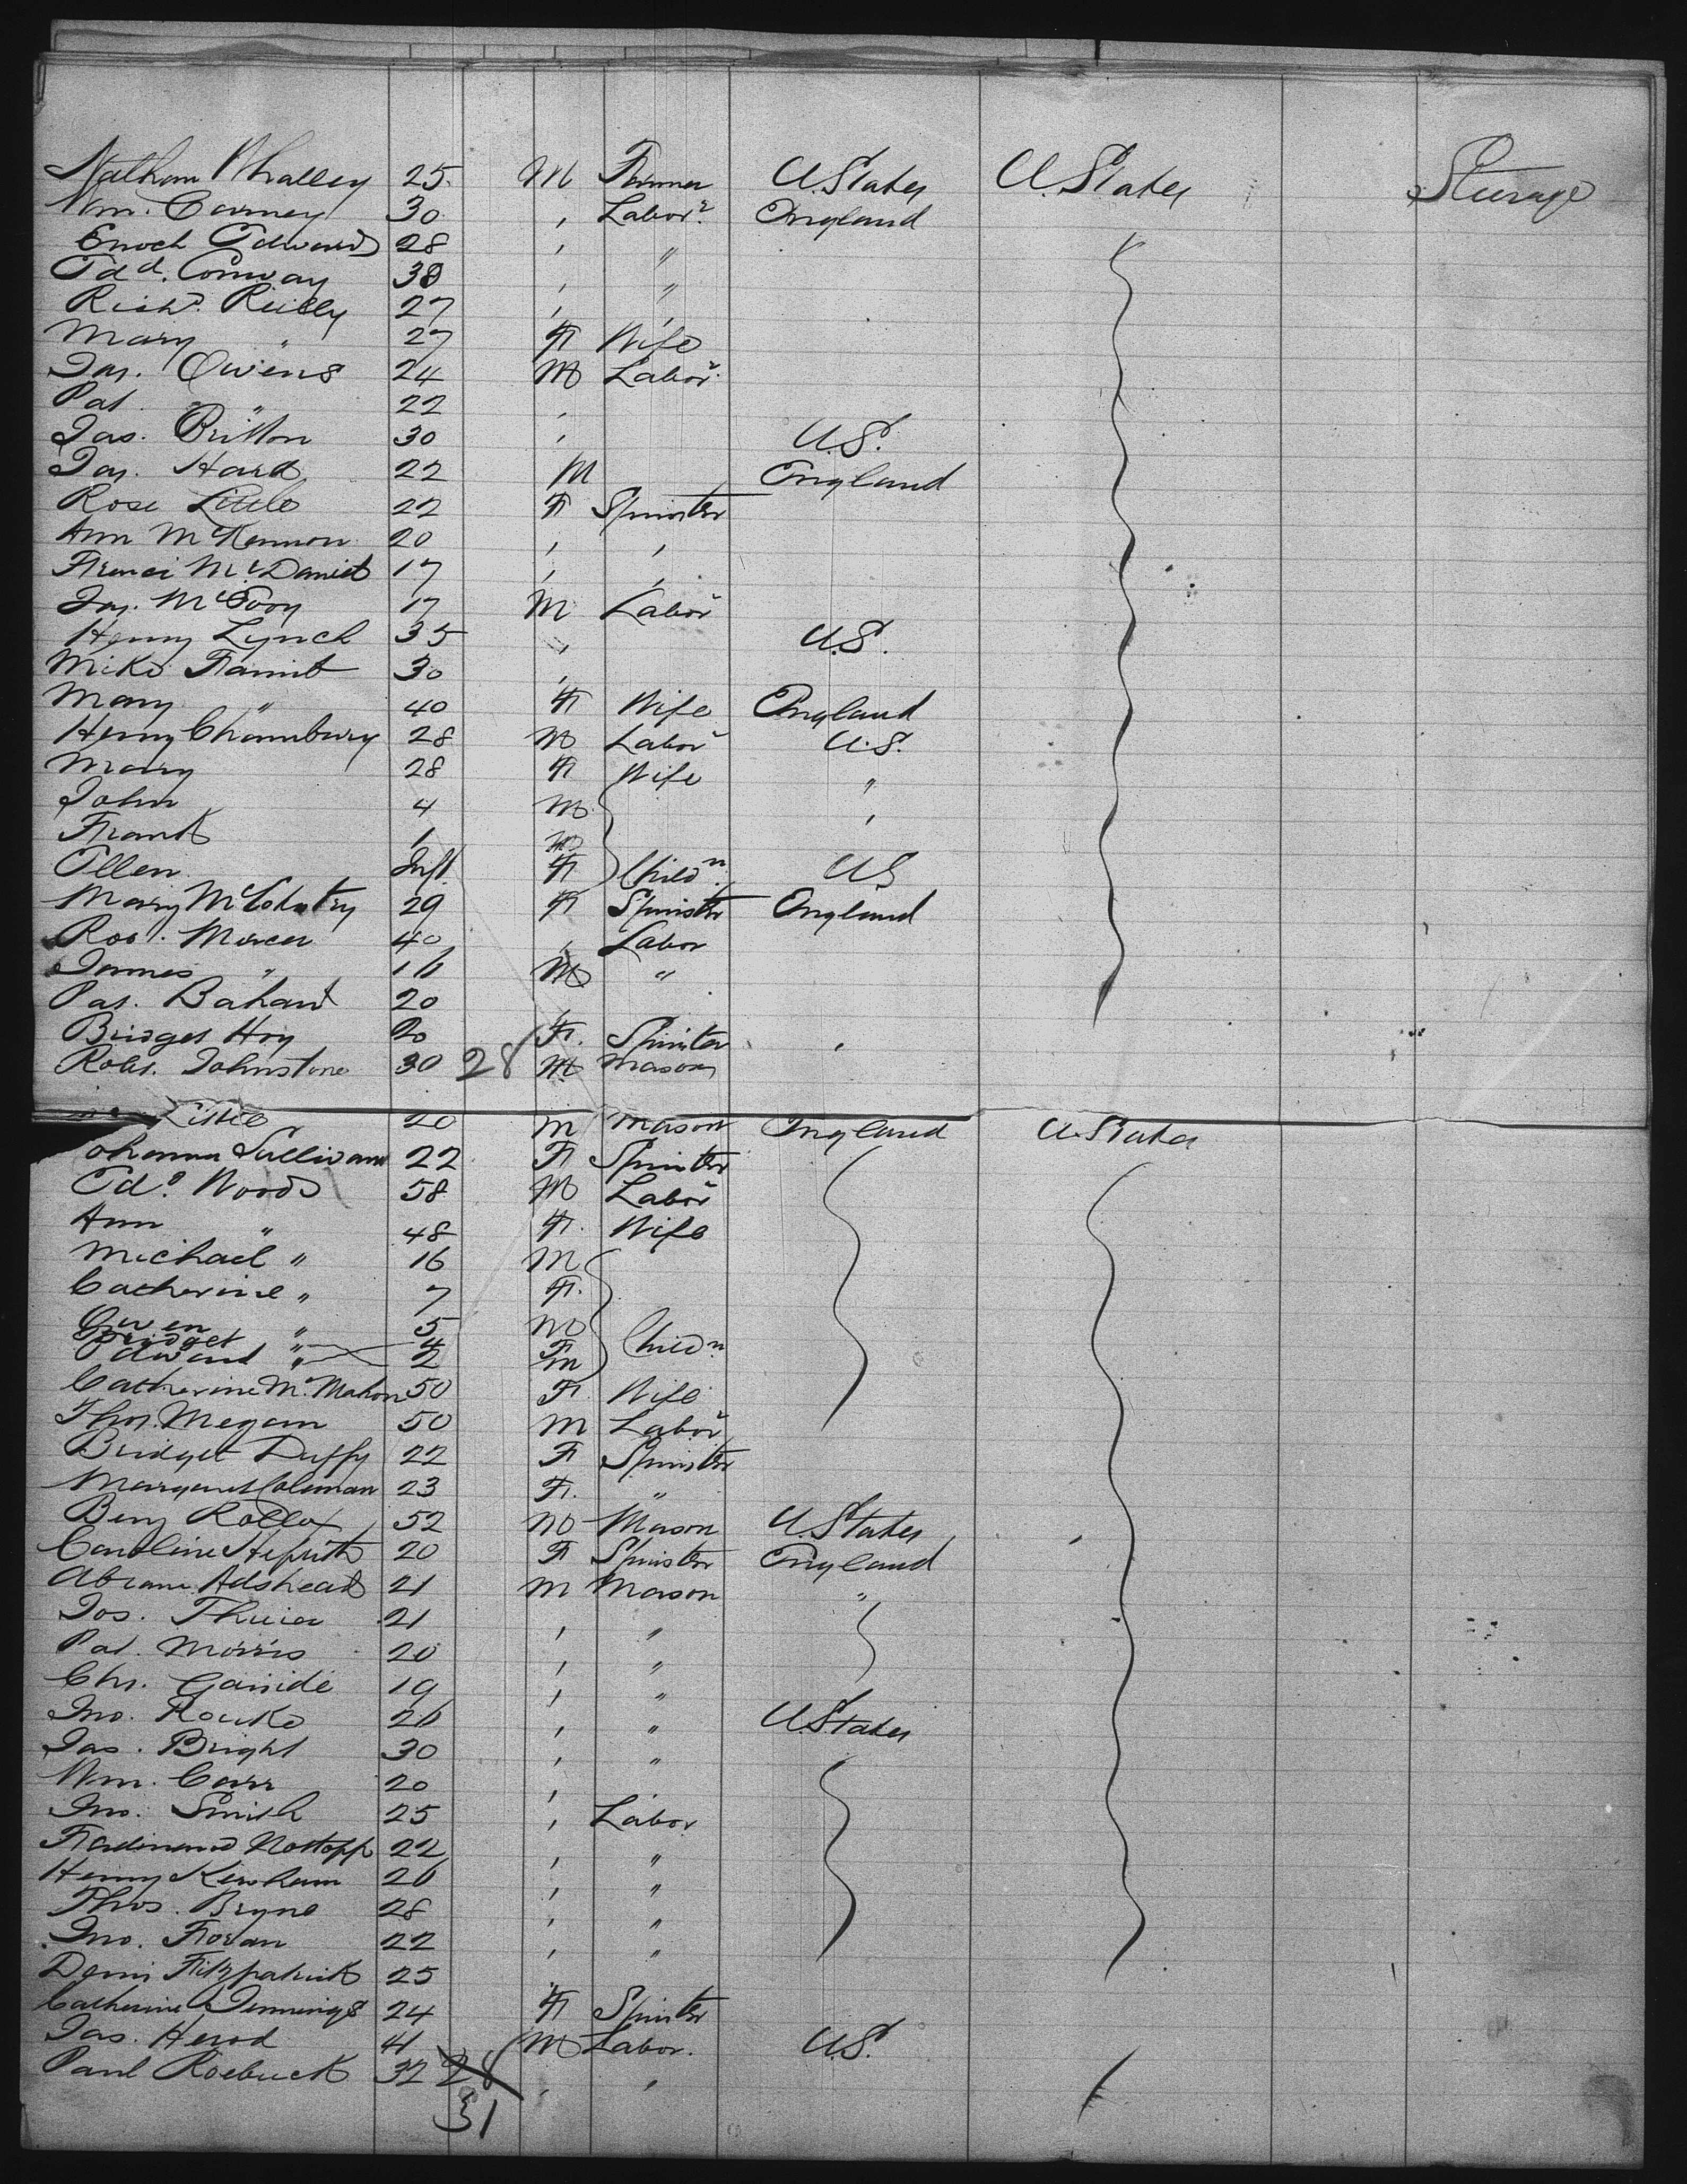 Nathan Whalley 25 M Farmer U.States U.States Steerage
Wm. Carney 30 , Labor^r England
Enoch Edwards 28 , "
Ed^d. Conway 38 , "
Rich^d. Reilly 27 , ,
Mary " 27 F Wife
Jas. Owens 24 M Labor^r
Pat. " 22 ,
Jas. Britton 30 , U.S.
Jas. Hard 22 M England
Rose Little 22 F Spinster
Ann McKennon 20 , ,
McDaniel 17 , ,
Jas. McEvoy 17 M Labor^r
Henry Lynch 35 " U.S.
Mike 30 ,
Mary " 40 F Wife England
Henry 28 M Labor^r U.S.
Mary 28 F Wife "
John 4 M ,
Frank 1 M
Ellen Inft. F Child^n U.S
Mary 29 F Spinster England
Rob^t. Mercer 40 , Labor
James " 16 M "
Pat. 20 ,
Bridget Hoy 20 F. Spinster ,
Robt. Johnstone 30 28 M Mason
Little 20 M Mason England U.States
ohanna Sullivan 22 F Spinster
Ed^d Woods 58 M Labor^r
Ann " 48 F. Wife
Michael " 16 M
Catherine " 7 F.
Owen " 5 M
Bridget " 4 F Child^n
Edward " 2 M
Catherine McMahon 50 F. Wife
Thos. Megam 50 M Labor^r
Bridget Duffy 22 F Spinster
Margaret Coleman 23 F. "
Benj 52 M Mason U.States
Caroline 20 F Spinster England
Abram Adshead 21 M Mason "
Jos. 21 , "
Pat. Morris 20 , "
Chs. 19 , "
Jno. Rourke 26 , " U.States
Jas. Bright 30 , "
Wm. Carr 20 ,
Jno. Smith 25 , Labor
Ferdinand 22 , "
Henry Kersham 26 , "
Thos. Bryne 28 , "
Jno. Foran 22 , "
Denis Fitzpatrick 25 "
Catherine Jennings 24 F Spinster
Jas. Herod 41 M Labor. U.S.
Paul Roebuck 32 28 , ,
31